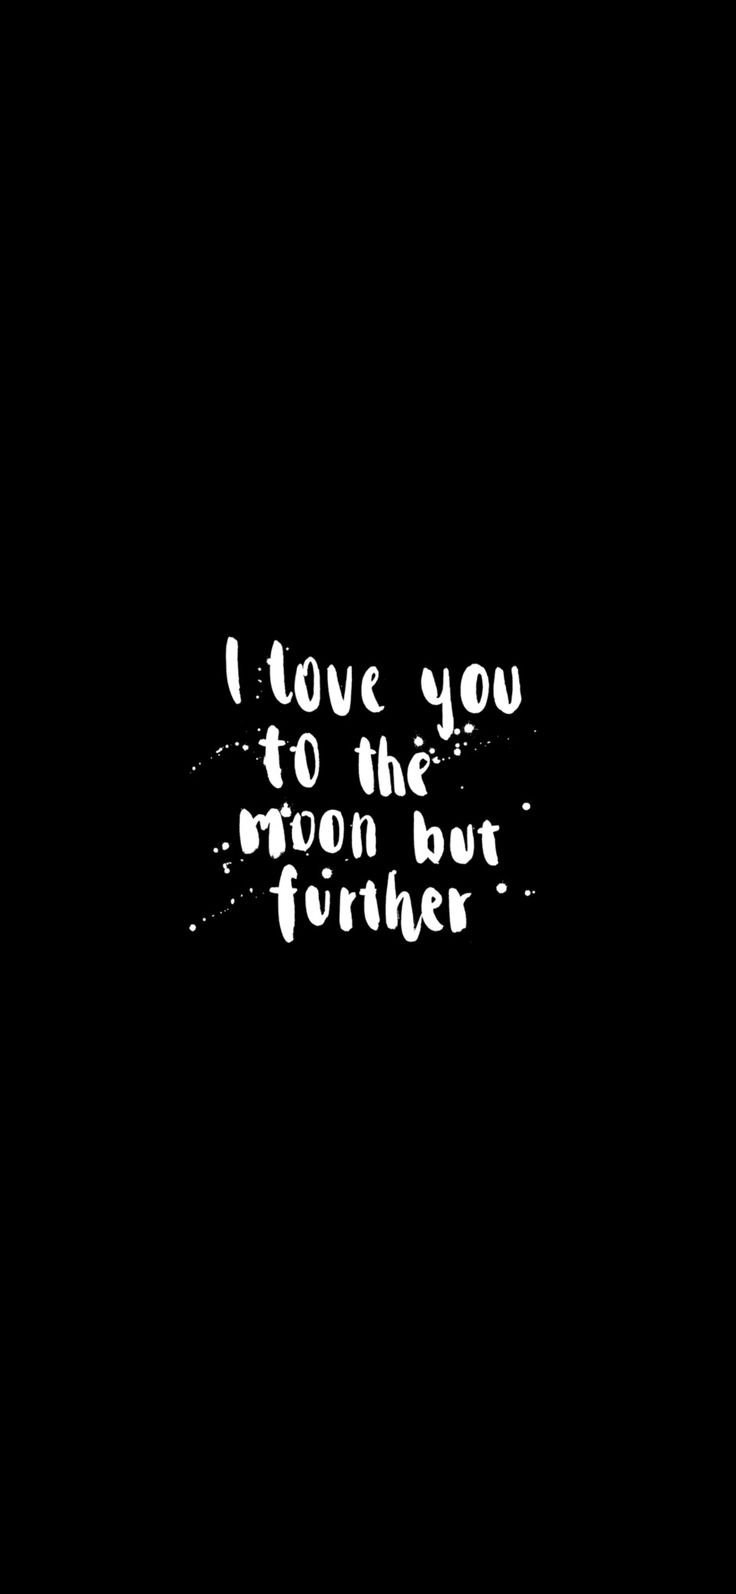 I love you
to the
moon but
further